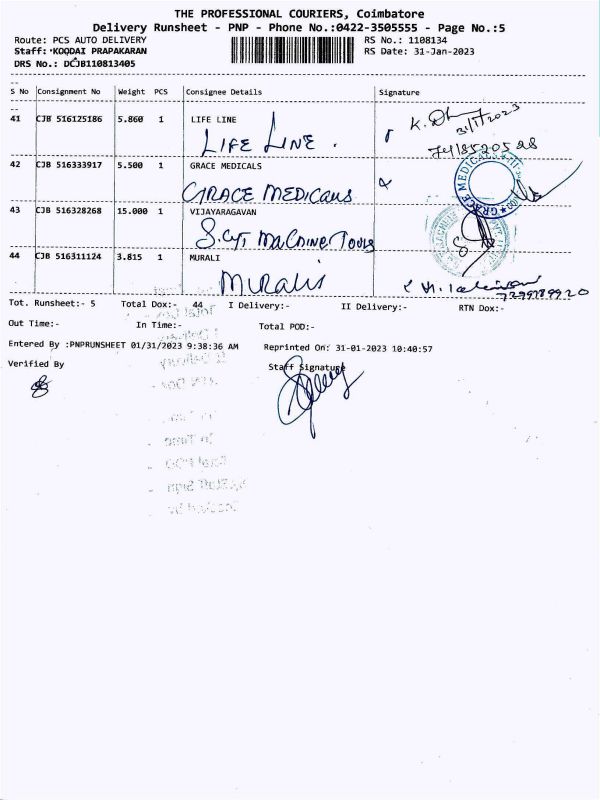 THE PROFESSIONAL COURIERS, Coimbatore
Delivery Runsheet - PNP - Phone No.:0422-3505555 - Page No.:5
Route: PCS AUTO DELIVERY RS No.: 1108134
Staff: KOODAI PRAPAKARAN RS Date: 31-Jan-2023
DRS No.: DCJB110813405
S No Consignment No Weight PCS Consignee Details Signature
41 CJB 516125186 5.860 1 LIFE LINE
K. 31/1/2023
LIFE LINE.
42 CJB 516333917 5.500 1 GRACE MEDICALS
GRACE MEDICALS
GRACE MEDICALS
43 CJB 516328268 15.000 1 VIJAYARAGAVAN
Machine Tools
44 CJB 516311124 3.815 1 MURALI
Murali
7299789920
Tot. Runsheet:- 5 Total Dox:- 44 I Delivery:- II Delivery:- RTN Dox:-
Out Time:- In Time:- Total POD:-
Entered By :PNPRUNSHEET 01/31/2023 9:38:36 AM Reprinted On: 31-01-2023 10:40:57
Verified By Staff Signature